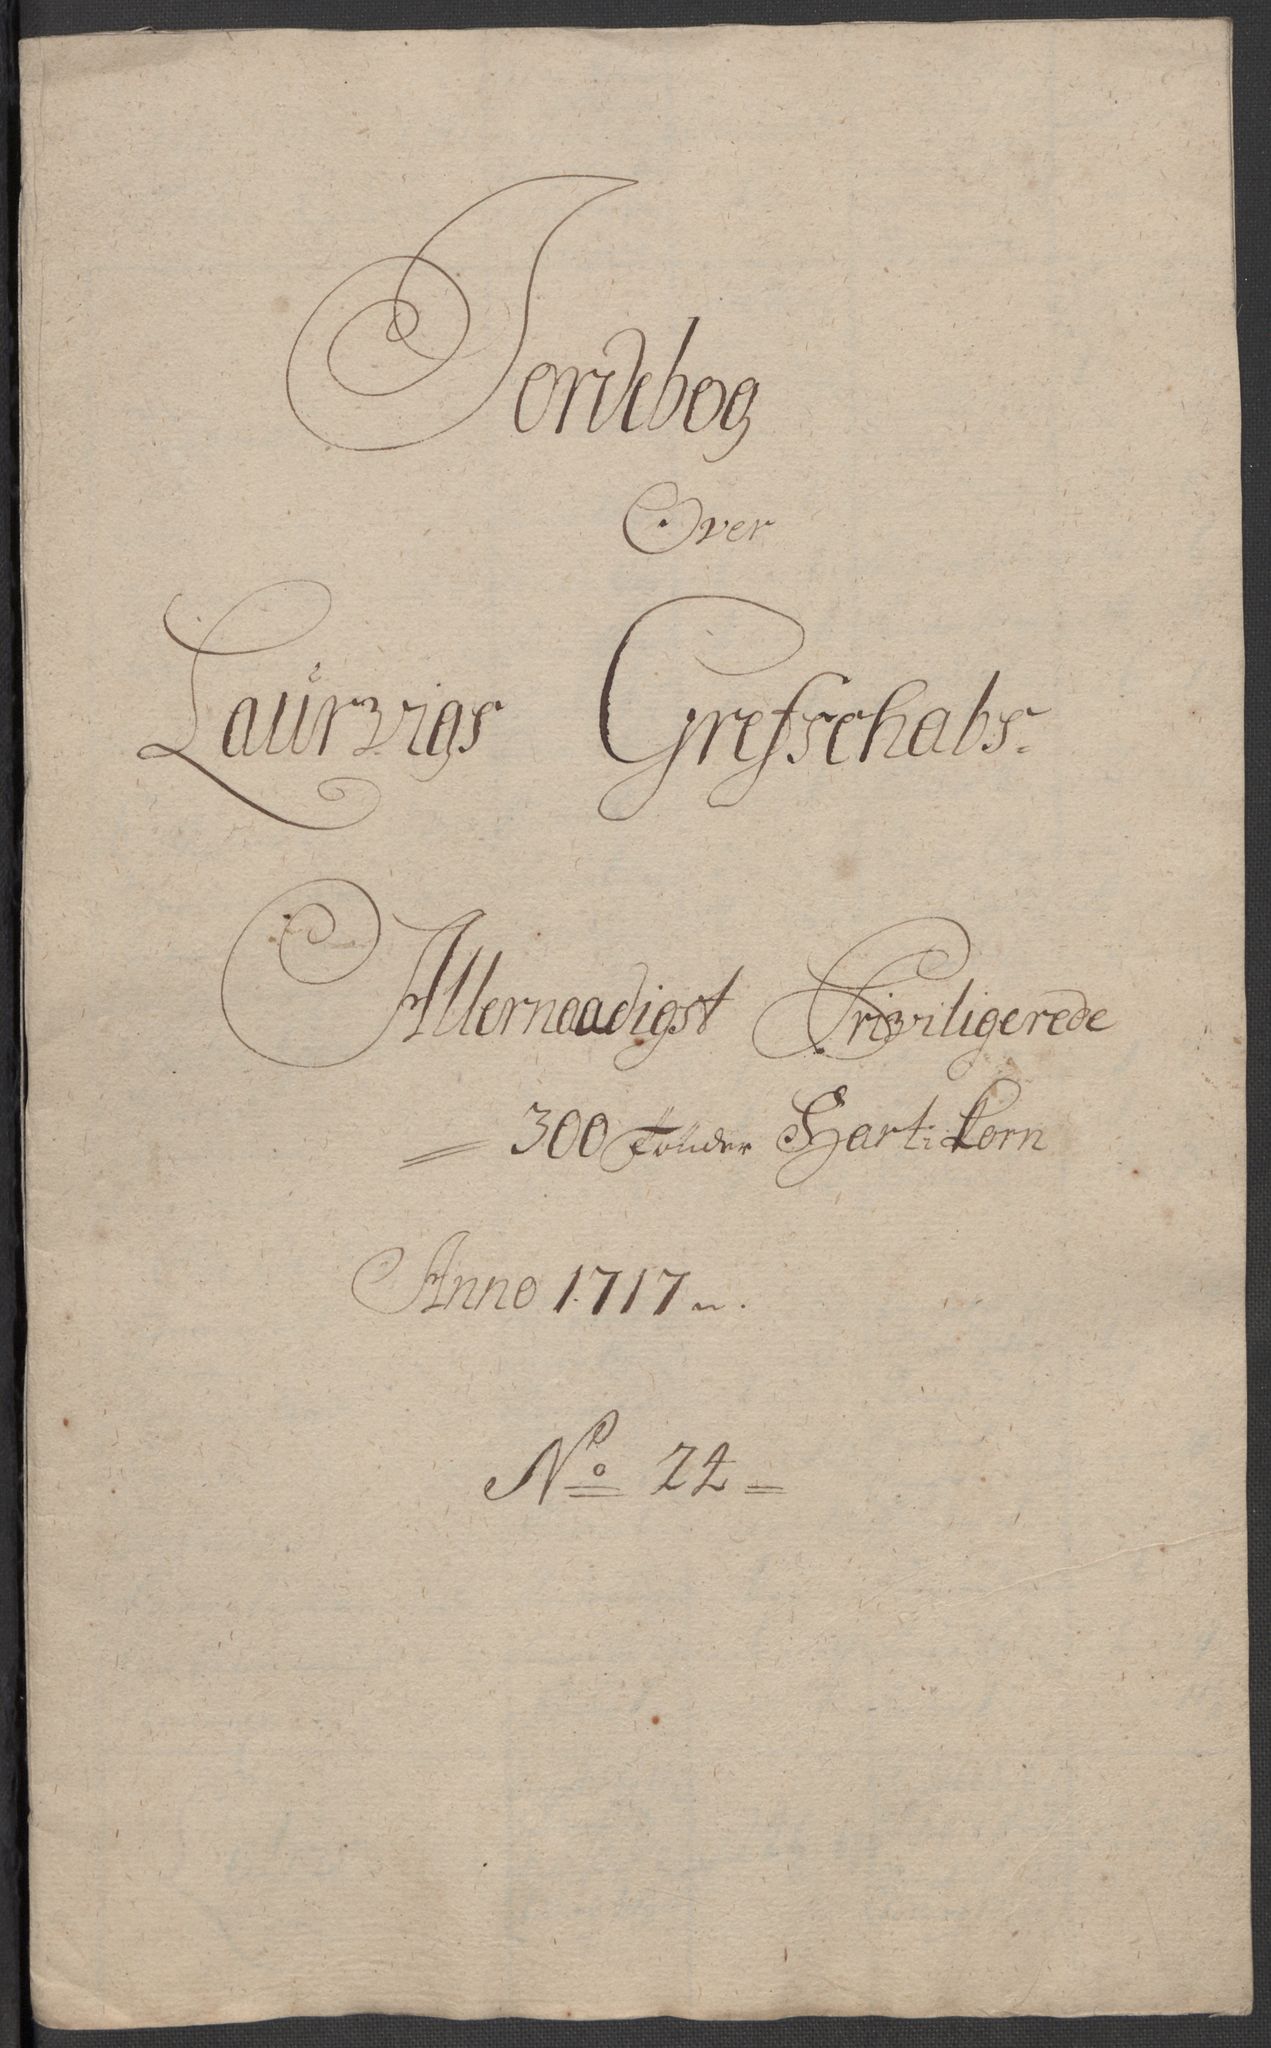 Jordebog
Over
Laurvigs Grefschabs
Allernaadigst Priviligerede
= 300 Tønder Hart:korn
Anno 1717 ~.
No 24 =